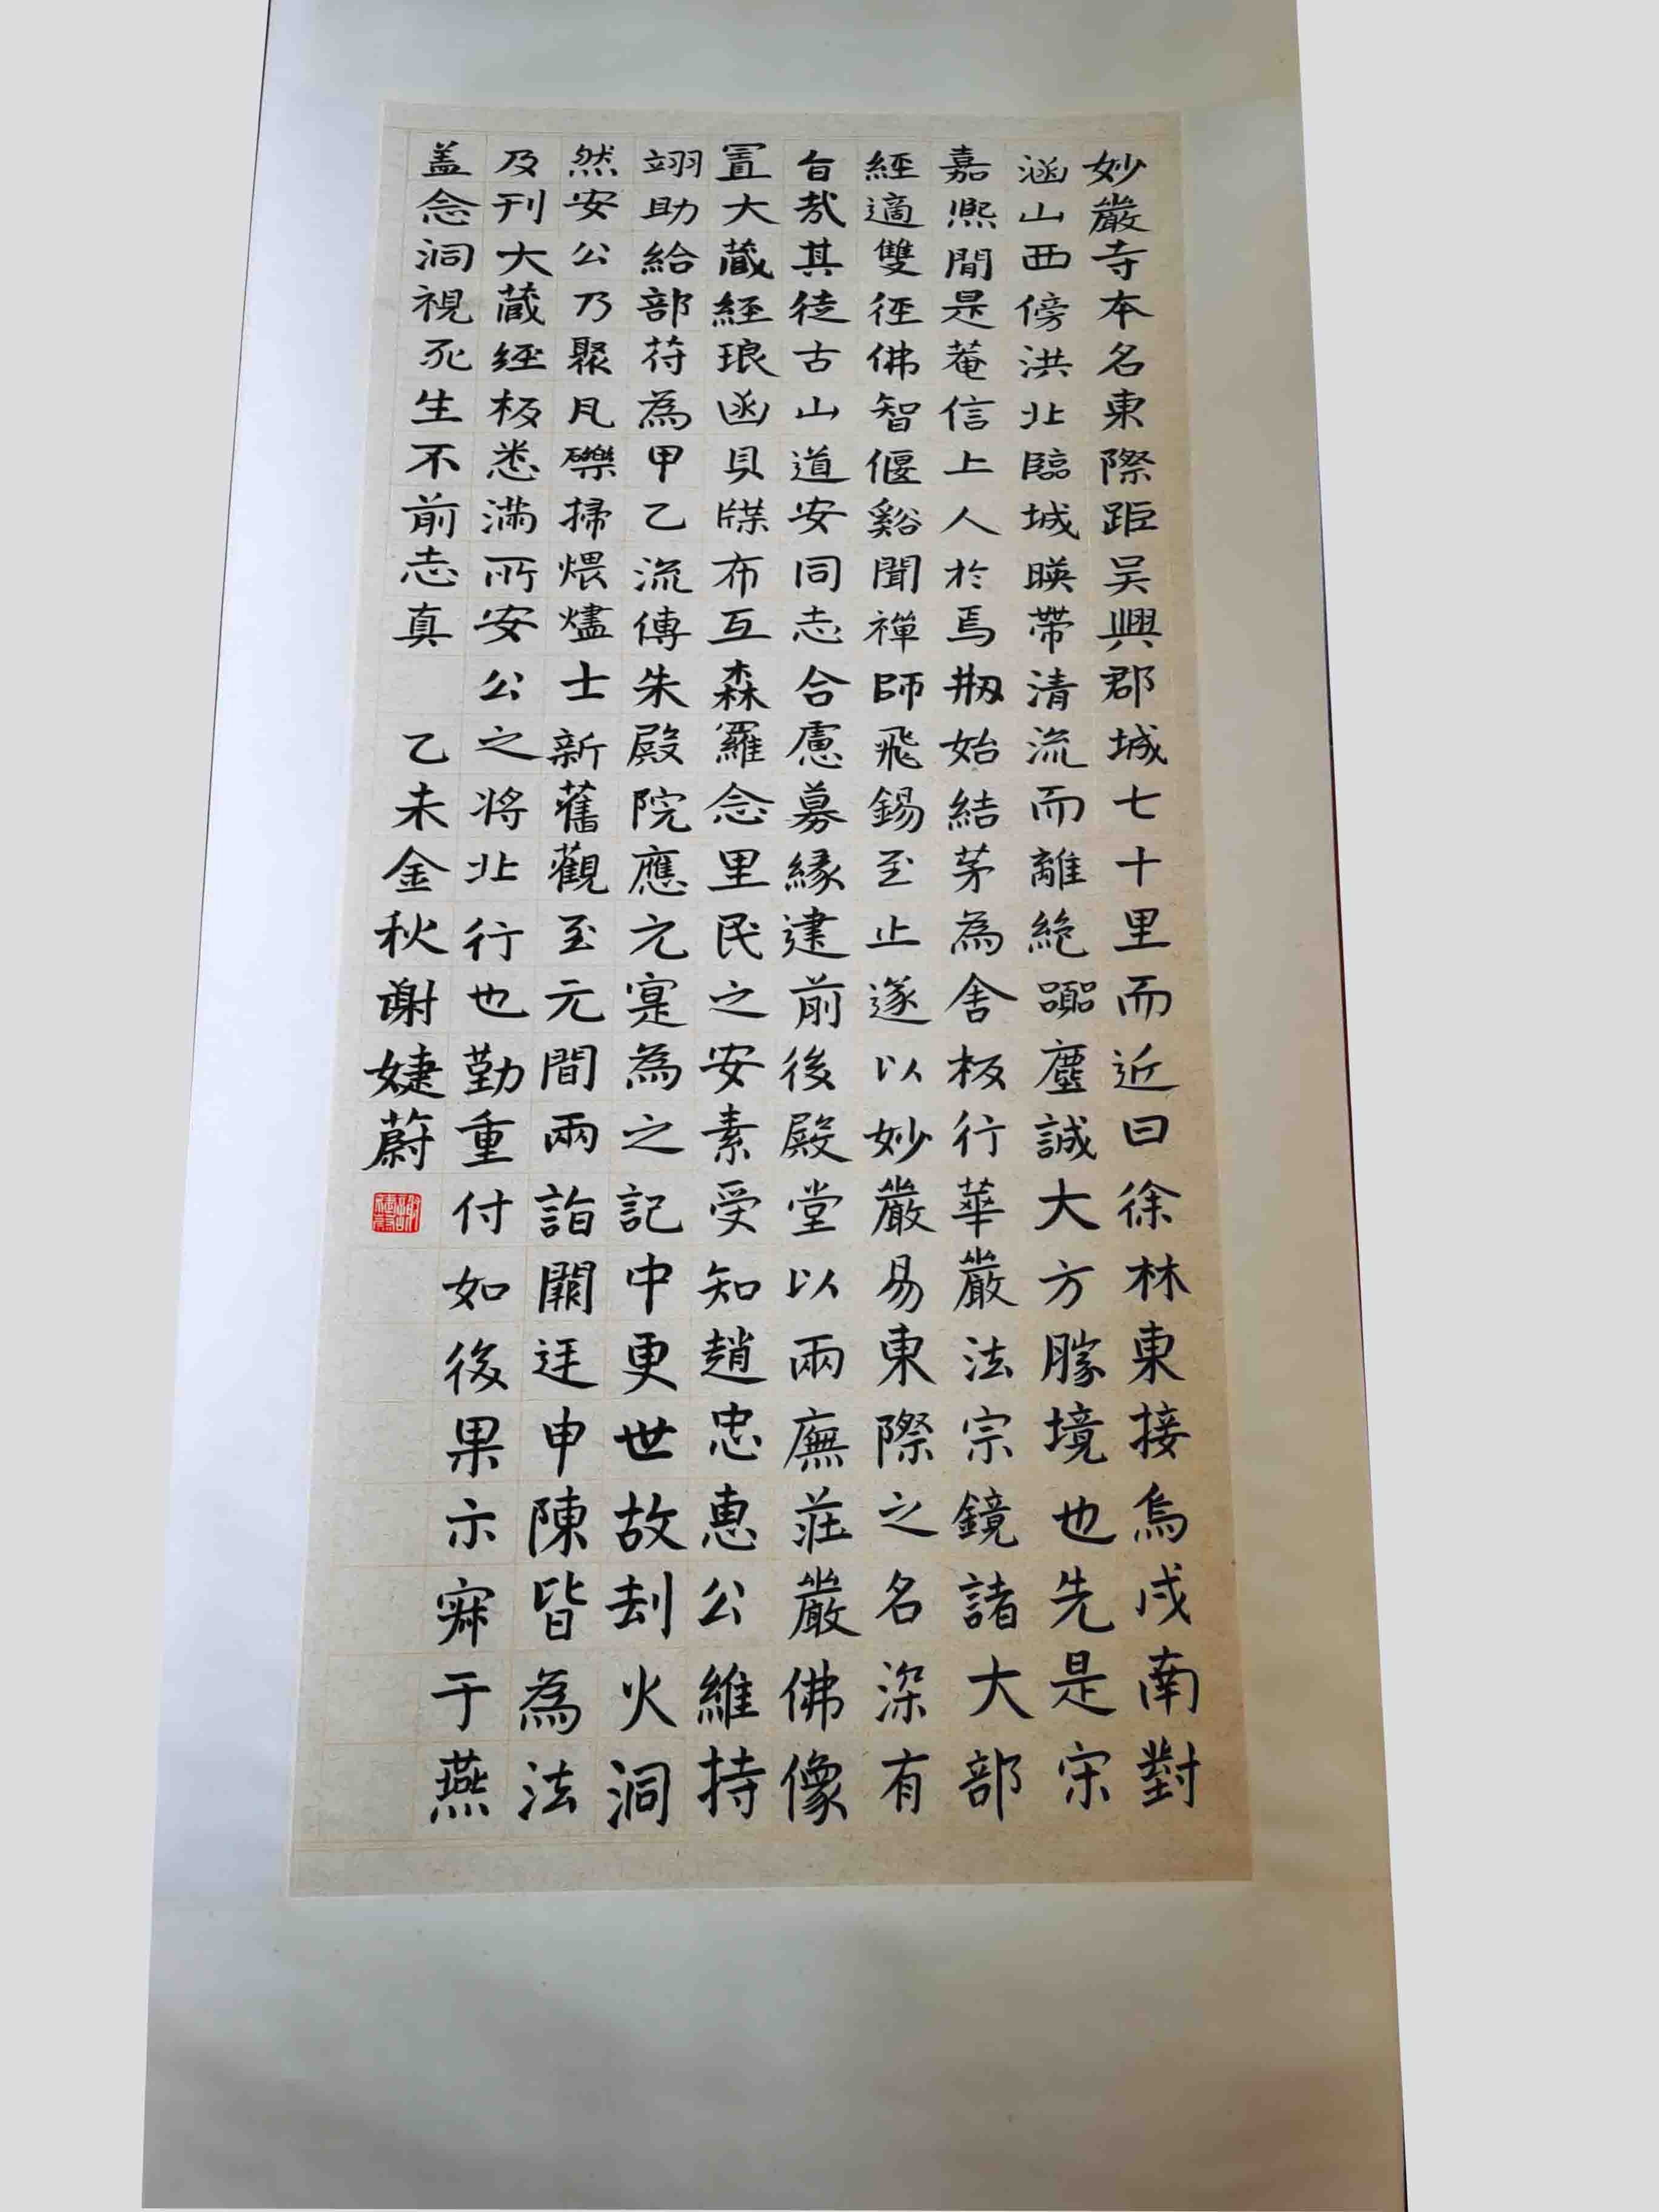 妙嚴寺本名東際距吴興郡城七十里而近曰徐林東接烏戍南對
涵山西傍洪北臨城暎帶清流而離絶囂塵誠大方勝境也先是宋
嘉熙間是菴信上人於焉剏始結茅為舍板行華嚴法宗鏡諸大部
經適雙徑佛智偃谿聞禪師飛錫至止遂以妙嚴易東際之名深有
旨㢤其徒古山道安同志合慮募緣建前後殿堂以兩廡莊嚴佛像
置大藏經琅函貝牒布互森羅念里民之安素受知趙忠惠公維持
翊助給部苻為甲乙流傳朱殿院應元寔為之記中更世故刦火洞
然安公乃聚凡礫掃煨燼士新舊觀至元間兩詣闕廷申陳皆為法
及刊大蔵經板悉满所安公之将北行也勤重付如後果示寂于燕
盖念洞視死生不前志真 乙未金秋謝婕蔚